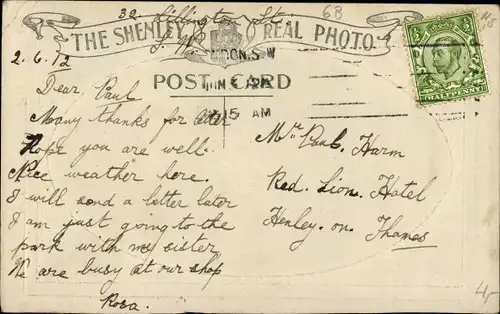 32. Lillington St.
68
THE SHENLEY REAL PHOTO
S. W.
2.6.12
LONDON. S.W
POST CARD
JUN
15 AM
HALFPENNY
Dear Paul
Many thanks for letter
Hope you are well.
Nice weather here.
I will send a letter later
I am just going to the
park with my sister
We are busy at our shop
Rosa.
Mr Paul. Harm
Red. Lion. Hotel
Henley. on. Thames
4,-